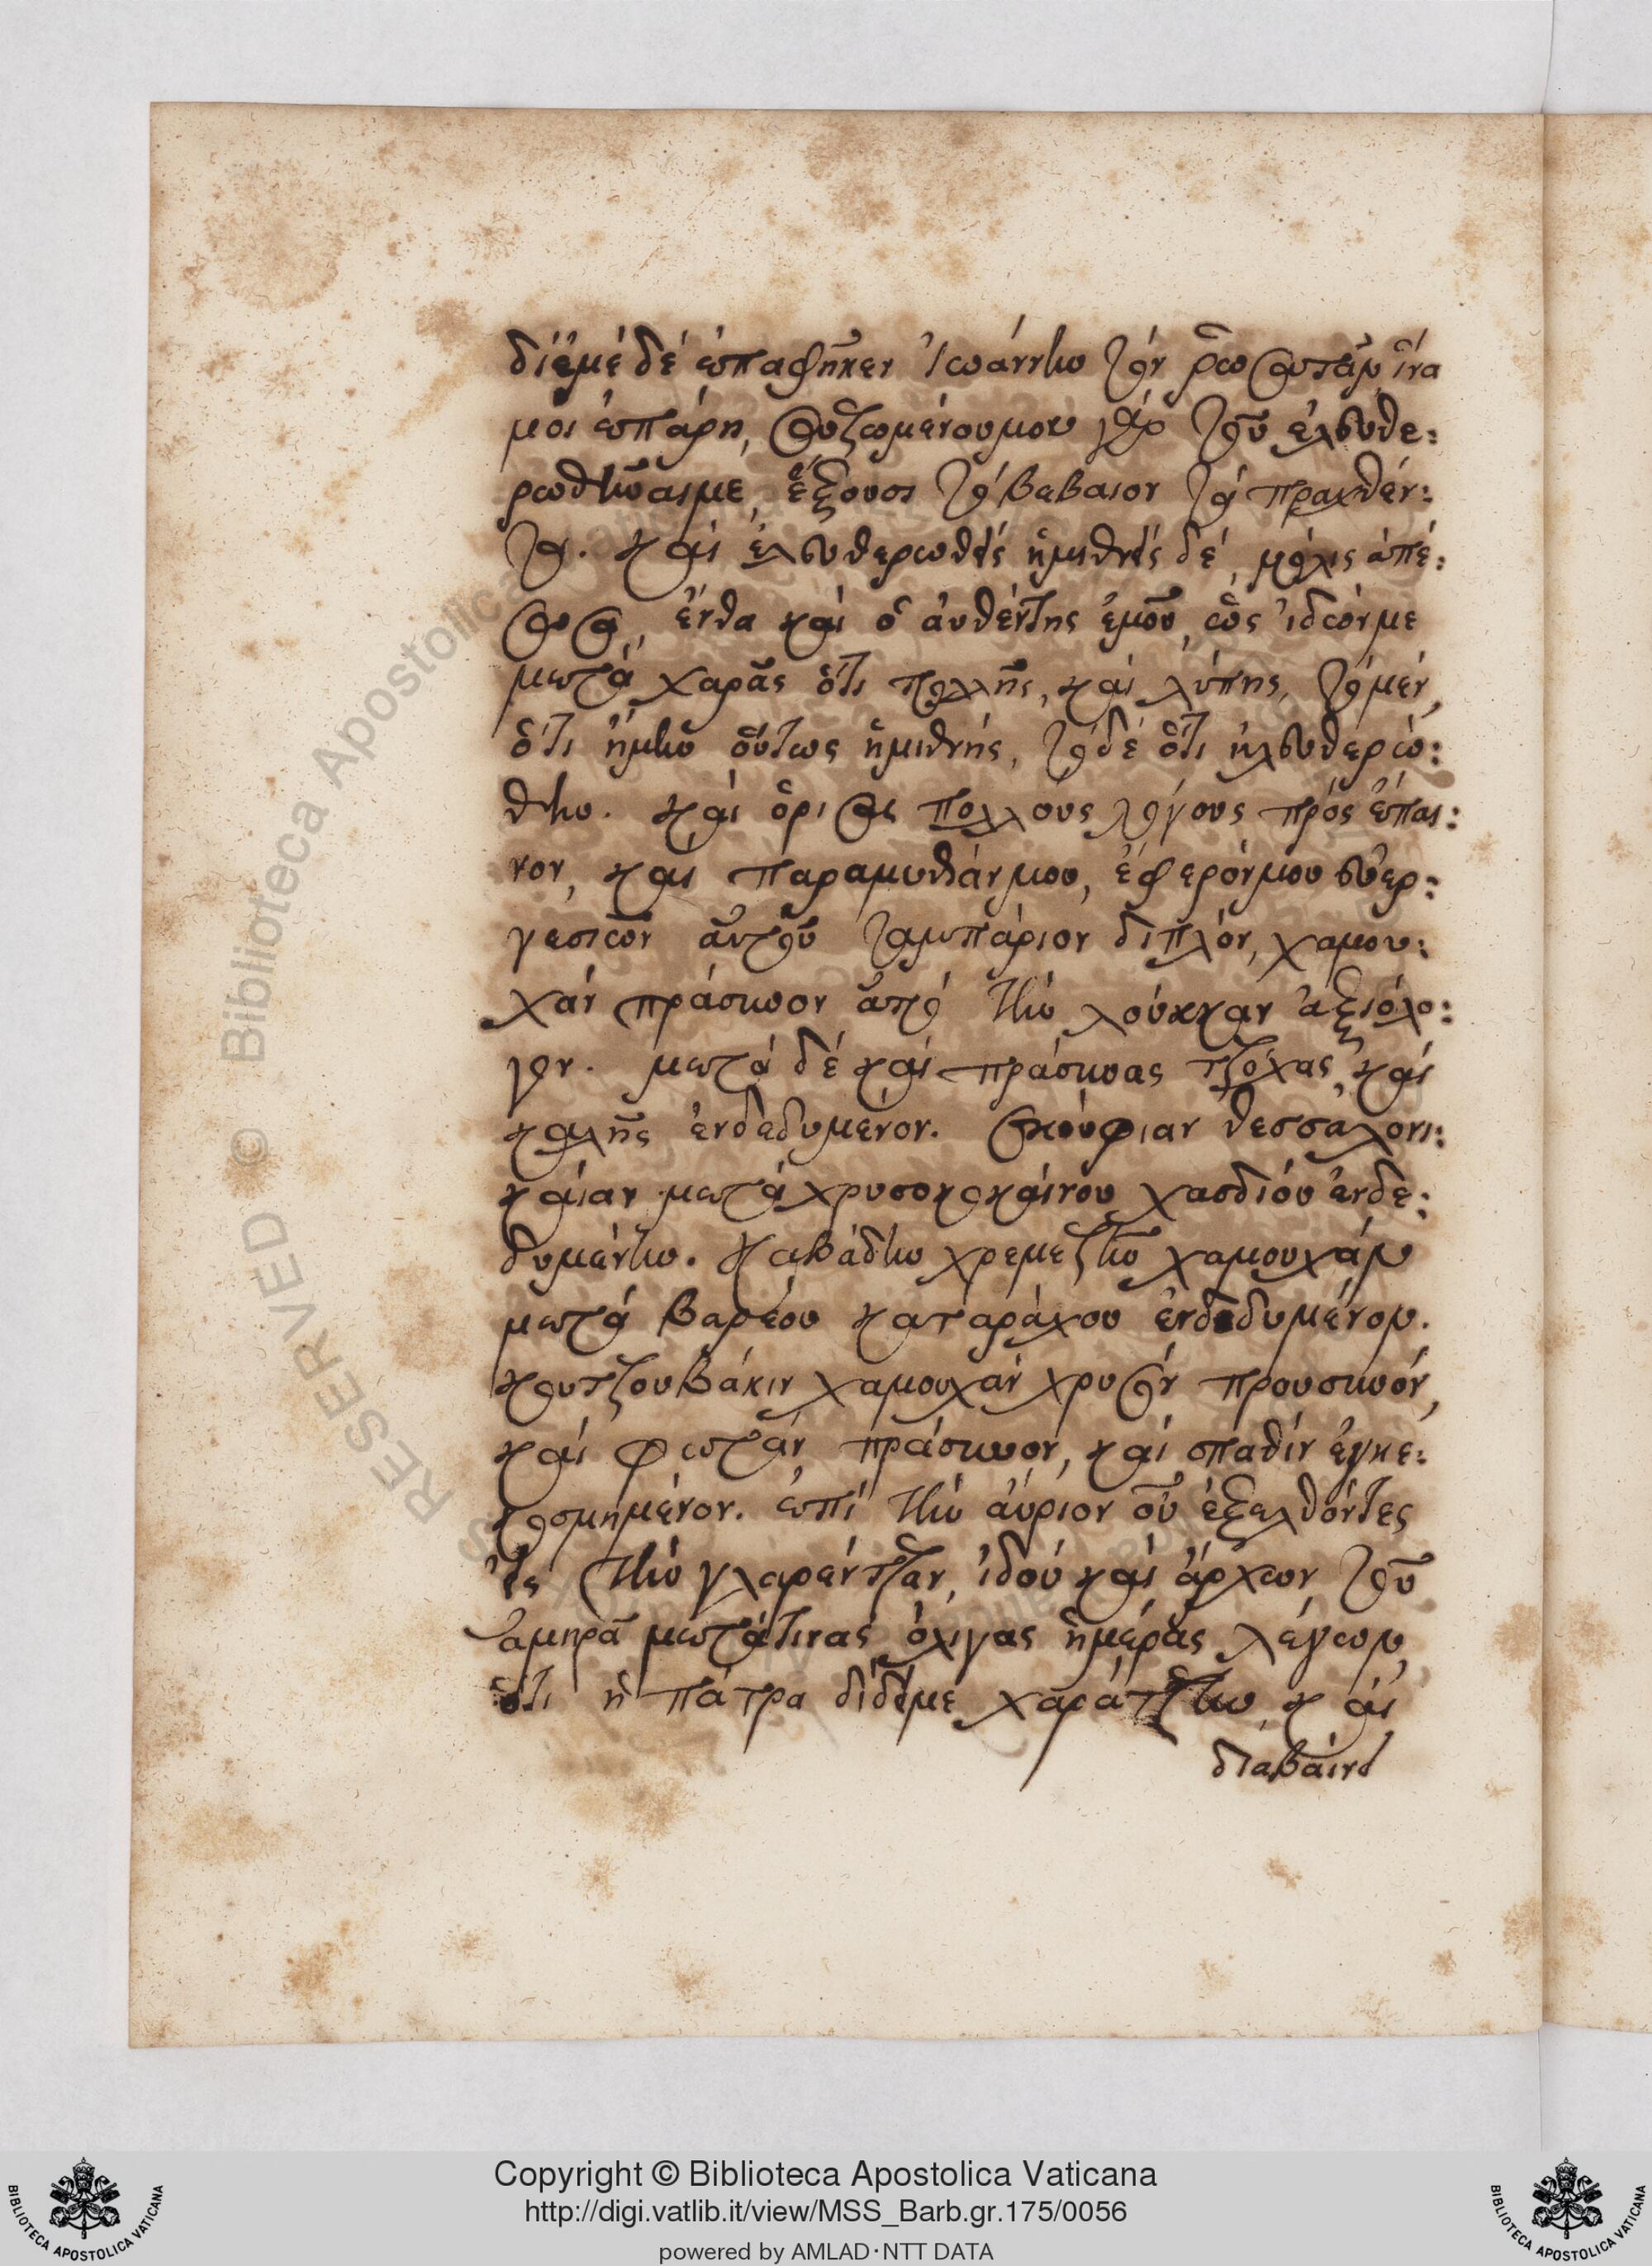 δι' ἐμὲ δὲ ἐπαφῆκεν Ἰωάννην τὸν ῥωσοτᾶν ἵνα
μοι ἐπάρη, σωζομένου μου γὰρ τοῦ ἐλευθε:
ρωθῆναι με, ἕξουσι τὸ βέβαιον τὰ πραχθέν:
τα. καὶ ἐλευθερωθεὶς ἡμιθνὴς δὲ, μόλις ἀπέ:
σωσα, ἔνθα καὶ ὁ αὐθέντης ἐμοῦ, ὃς ἰδών με
μετὰ χαρᾶς ὅτι πολλῆς, καὶ λύπης, τὸ μὲν,
ὅτι ἤμην οὕτως ἡμιθνής, τὸ δὲ ὅτι ἠλευθερώ:
θην. καὶ ὅρισε πολλοὺς λόγους πρὸς ἔπαι:
νον, καὶ παραμυθίαν μου, ἐφερόν μου εὐερ:
γεσιῶν αὐτοῦ ταμπάριον διπλὸν, χαμου:
χάν πράσινον ἀπὸ τὴν λούκκαν ἀξιόλο:
γον. μετὰ δὲ καὶ πράσινας τζόχας καὶ
καλῆς ἐνδεδυμένον. σκούφιαν θεσσαλονι:
καίαν μετὰ χρυσοκοκκίνου χασδίου ἐνδε:
δυμένην. καβάδην χρεμεζὴν χαμουχᾶν
μετὰ βαρέου καταράχου ἐνδεδυμένον.
κουτζουβάκιν χαμουχὰν χρυσὸν προυσινόν,
καὶ φωτὰν πράσινον, καὶ σπαθὶν ἐγκε:
κοσμημένον. ἐπὶ τὴν αὔριον οὖν ἐξελθόντες
εἰς τὴν γλαρέντζαν, ἰδοὺ καὶ ἄρχων τοῦ
ἀμηρᾶ μετά τινας ὀλίγας ἡμέρας λέγων,
ὅτι ἡ πάτρα δίδει με χαράτζην, καὶ
διαβαίνει
Copyright © Biblioteca Apostolica Vaticana
http://digi.vatlib.it/view/MSS_Barb.gr.175/0056
powered by AMLAD·NTT DATA
BIBLIOTECA APOSTOLICA VATICANA
BIBLIOTECA APOSTOLICA VATICANA